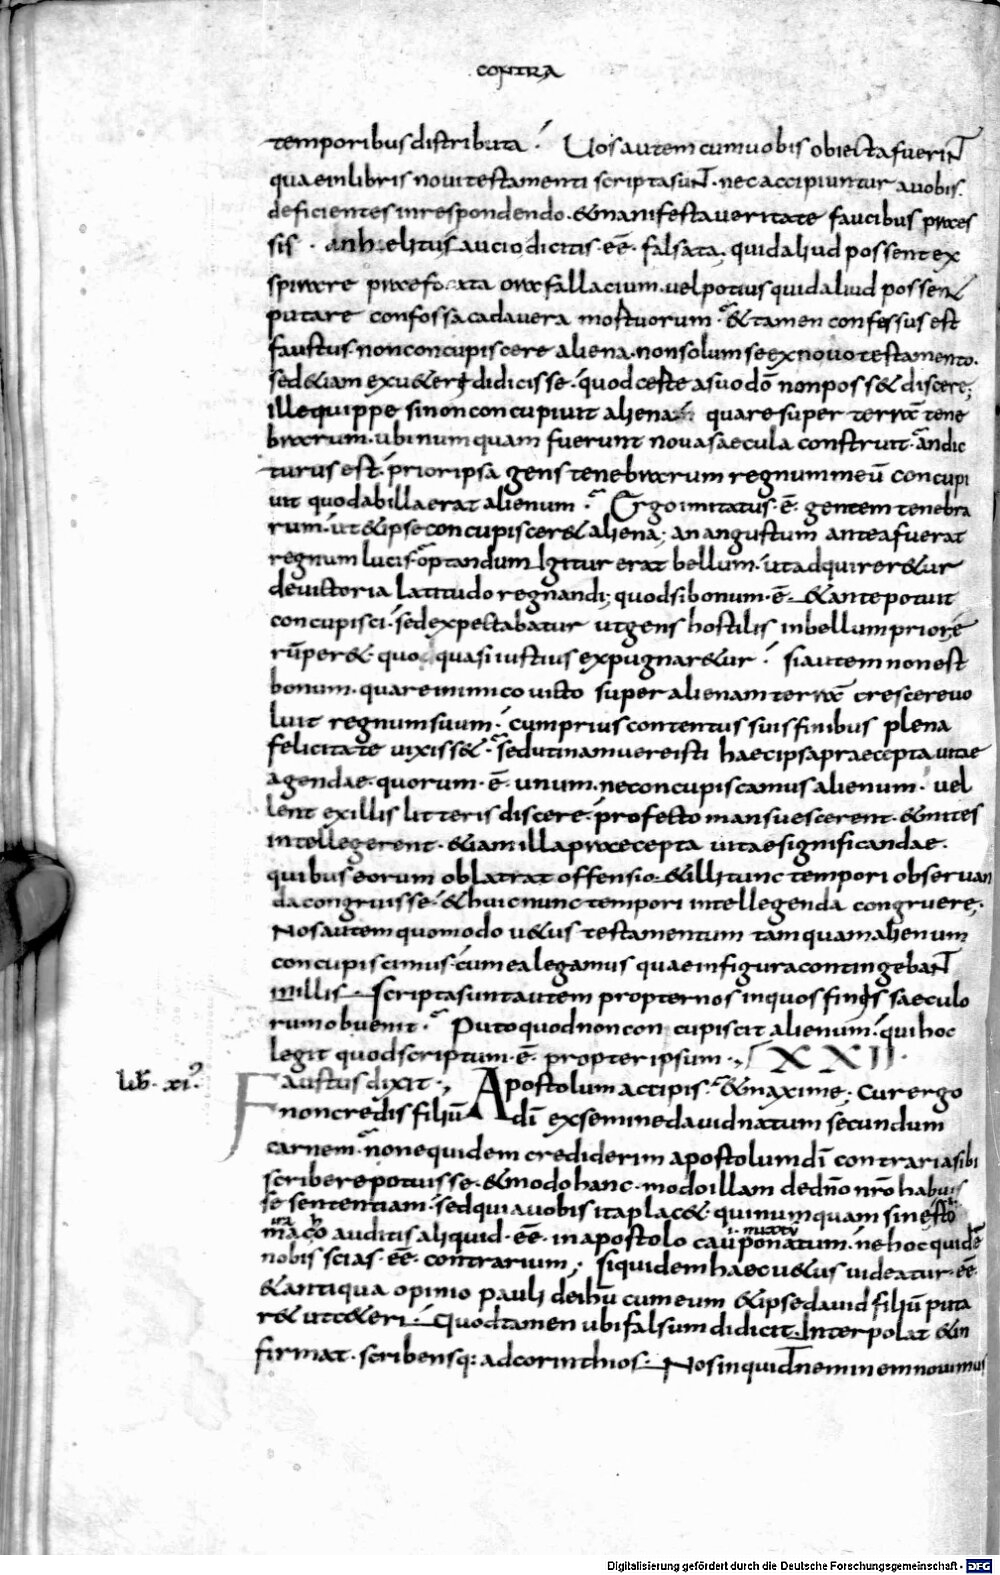 CONTRA
temporibus distributa. Uos autem cum uobis obiecta fuerint
quae in libris noui testamenti scripta sunt. nec accipiuntur a uobis.
deficientes in respondendo. & manifesta ueritate faucibus praes
sis. anhelitus aucio dicitis. eē. falsata. quid aliud possent ex
spirare praefo ata ora fallacium. uel potius quid aliud possent
putare confossa cadauera mortuorum. & tamen confessus est
faustus. non concupiscere aliena. non solum se ex nouo testamento.
sed &iam ex u&eri didicisse. quod certe a suo dō non poss& discere;
ille quippe si non concupiuit aliena quare super terrā tene
brarum. ubi numquam fuerunt noua saecula construit. an dic
turus est. prior ipsa gens tenebrarum regnum meū concupi
uit quod ab illa erat alienum. Ergo imitatus. ē. gentem tenebra
rum. ut & ipse concupiscer& aliena; an angustum antea fuerat
regnum lucis. optandum Igitur erat bellum. ut adquirer&ur
deuictoria latitudo regnandi; quod si bonum. ē. & ante potuit
concupisci. sed expectabatur ut gens hostilis in bellum priorē
rūper&. quo quasi iustius expugnar&ur. si autem non est
bonum. quare inimico uicto super alienam terrā crescere uo
luit regnum suum. cum prius contentus suis finibus plena
felicitate uixiss&. sed utinam uere isti haec ipsa praecepta uitae
agendae. quorum. ē. unum. ne concupiscamus alienum. uel
lent ex illis litteris discere. profecto mansuescerent. & mites
intellegerent. &iam illa praecepta uitae significandae.
quibus eorum oblatrat offensio. & illi tunc tempori obseruan
da congruisse. & huic nunc tempori intellegenda congruere;
Nos autem quomodo u&us testamentum tamquam alienum
concupiscimus. cum ea legamus quae in figura contingebant
in illis. Scripta sunt autem propter nos in quos finis saeculo
rum obuenit. Puto quod non concupiscit alienum. qui hoc
legit quod scriptum. ē. propter ipsum. XXII.
lib. xi. Faustus dixit. Apostolum accipis. & maxime; Cur ergo
non credis filiū dī ex semine dauid natum secundum
carnem. non equidem crediderim apostolum dī contraria sibi
scribere potuisse. & modo hanc. modo illam de dn̄o nr̄o habuis
se sententiam. sed qui a uobis ita plac&. qui numquam sine sto
maco auditis aliquid. eē. in apostolo cauponatum. ne hoc quidē
nobis scias. eē. contrarium; siquidem haec u&us uideatur. eē.
& antiqua opinio pauli de ihū cum eum & ipse dauid filiū puta
r& ut c&eri. Quod tamen ubi falsum didicit. Interpolat & in
firmat. scribensq: ad corinthios. Nos inquid neminem nouimus
Digitalisierung gefördert durch die Deutsche Forschungsgemeinschaft - DFG